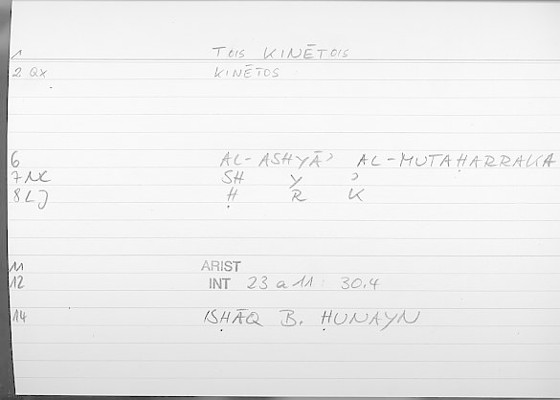 1 TOIS KINĒTOIS
2 QX KINĒTOS
6 AL-ASHYĀʾ AL-MUTAḤARRAKA
7 NK SH Y ʾ
8 LJ Ḥ R K
11 ARIST
12 INT 23 a 11 : 30.4
14 ISḤĀQ B. ḤUNAYN